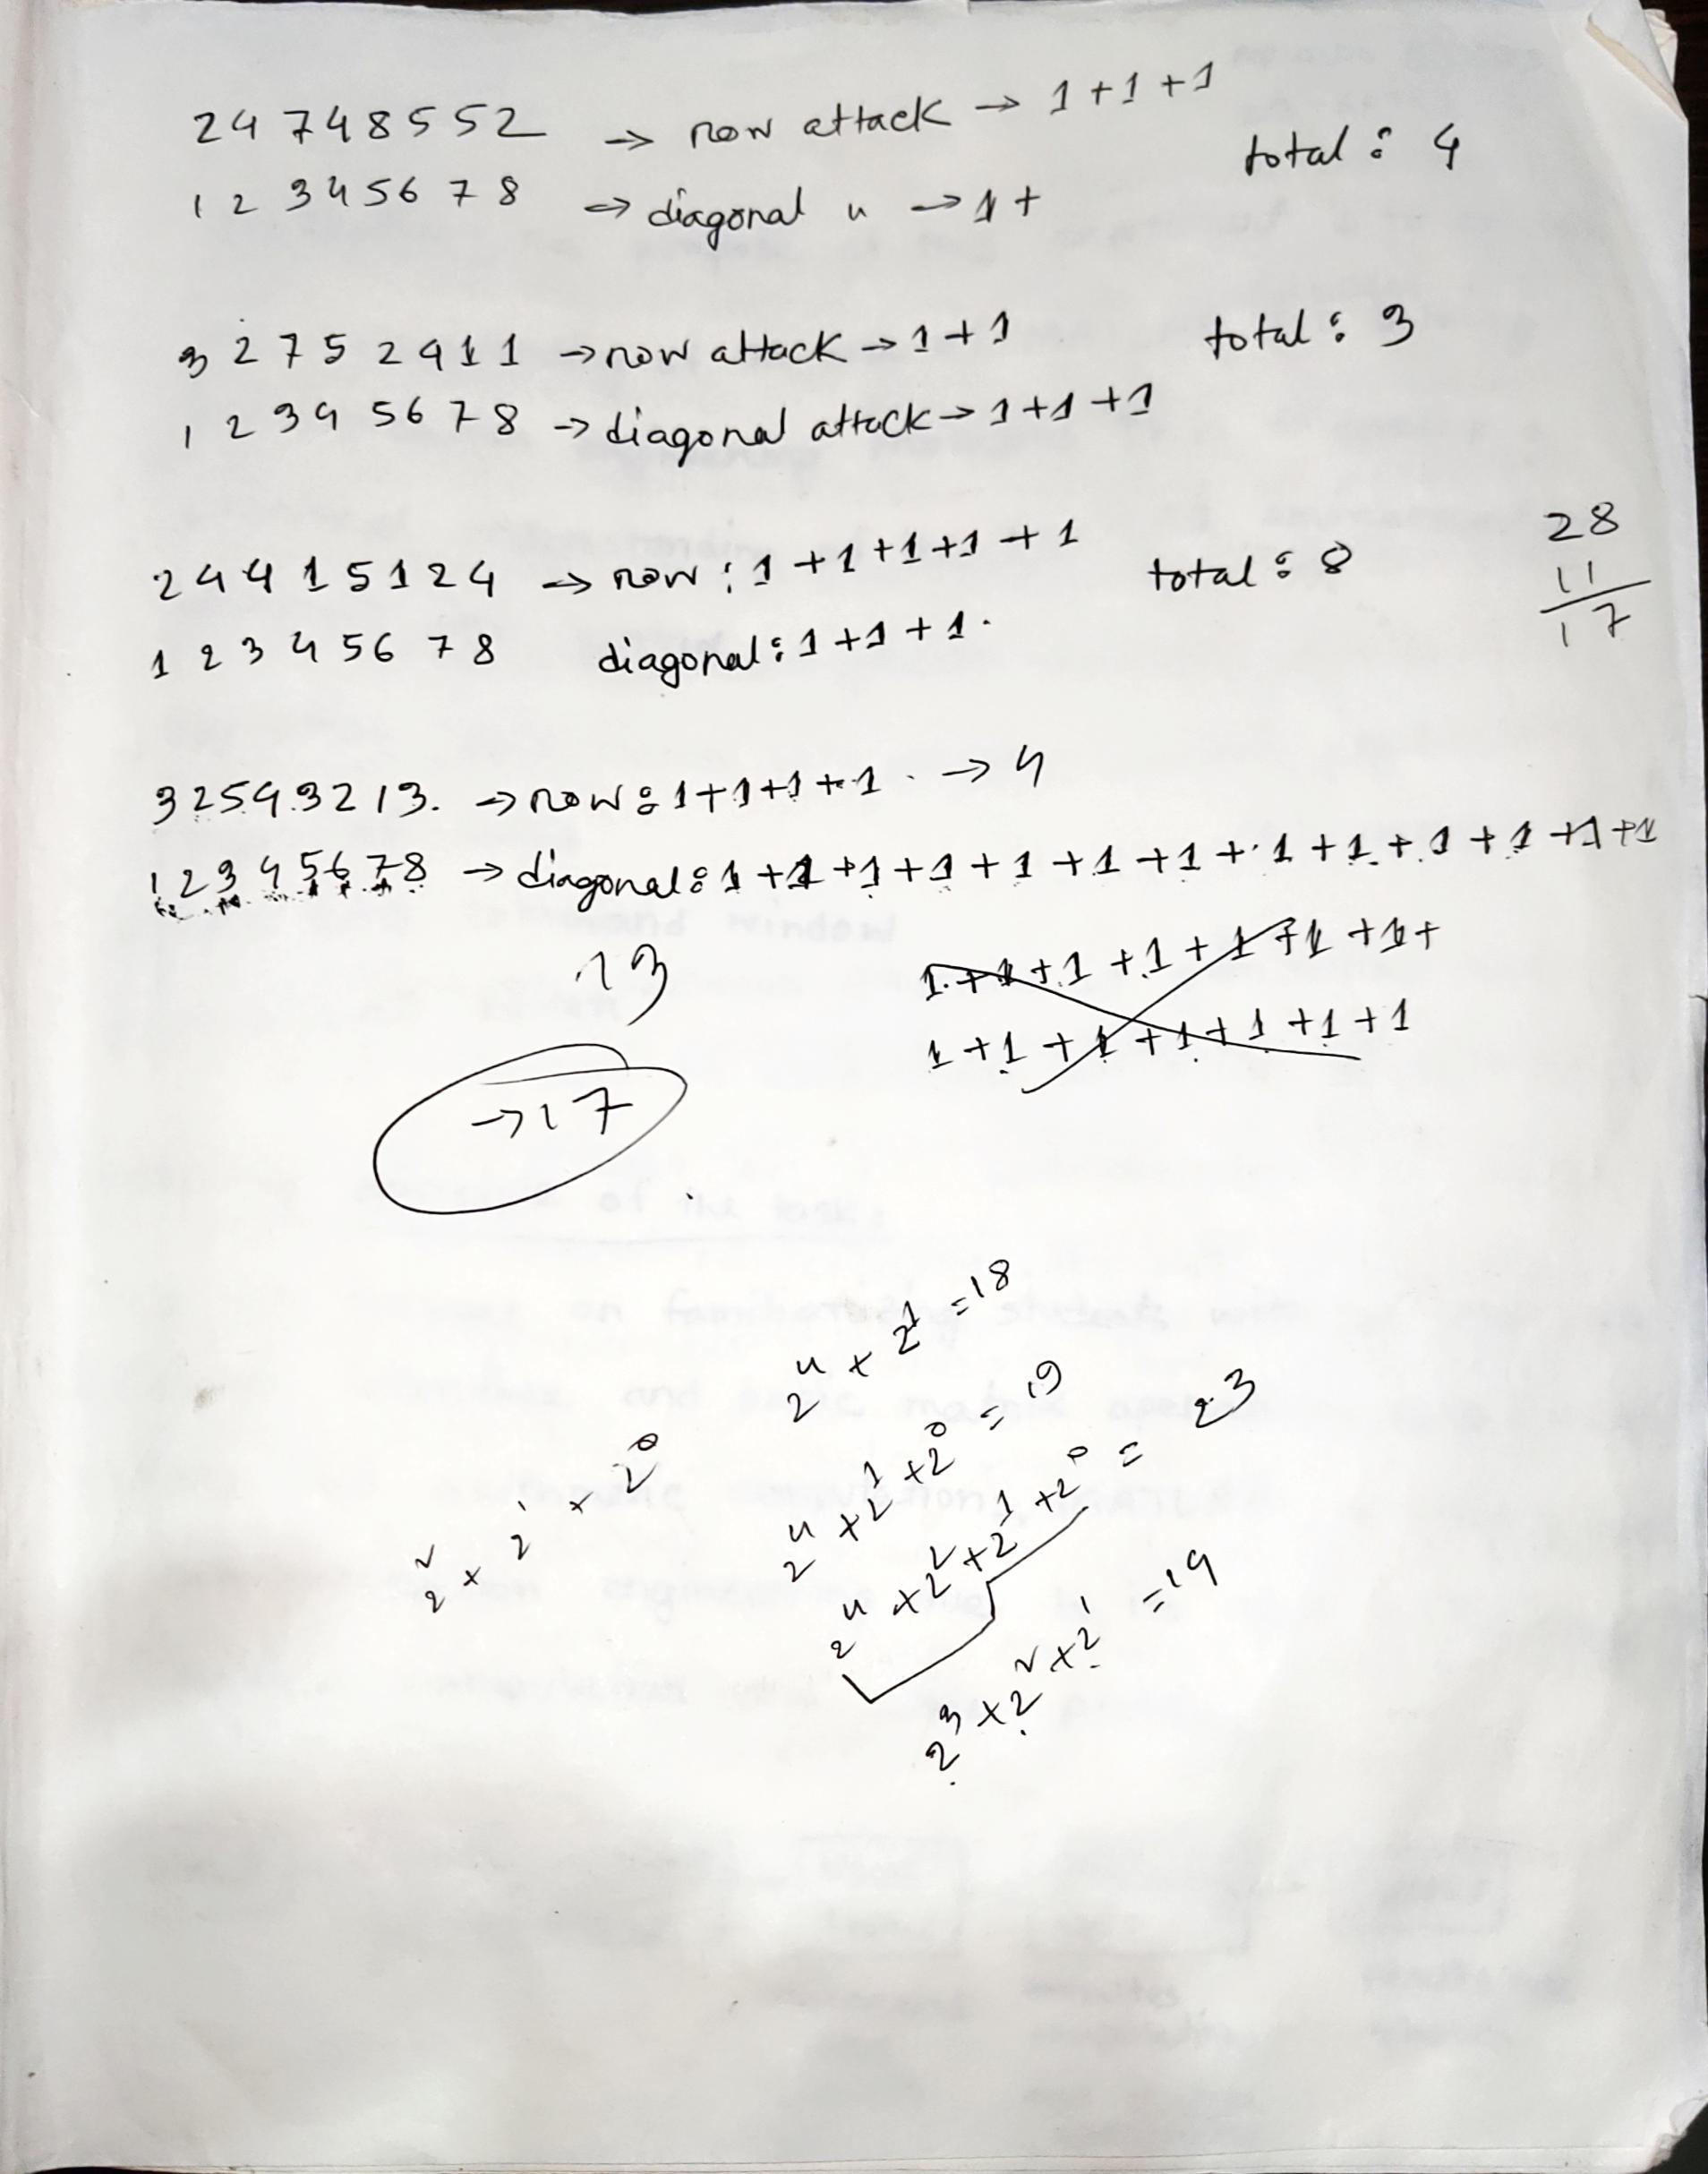 24 748552 → row attack → 1+1+1
total : 4
1 2 3 4 5 6 7 8 → diagonal " → 1+
3 2 7 5 2 4 1 1 → row attack → 1+1
total : 3
1 2 3 4 5 6 7 8 → diagonal attack → 1+1+1
2 4 4 1 5 1 2 4 → row : 1+1+1+1+1
total : 8
1 2 3 4 5 6 7 8 diagonal : 1+1+1.
28
11
17
32543213. → row : 1+1+1+1. → 4
1 2 3 4 5 6 7 8 → diagonal : 1+1+1+1+1+1+1+1+1+1+1+1+1
13
1+1+1+1+1+1+1+
1+1+1+1+1+1+1
→ 17
2⁴ × 2¹ = 18
2⁴ × 2¹ × 2⁰ = 19
2⁴ × 2² × 2¹ × 2⁰ = 23
2² × 2¹ × 2⁰
2³ × 2² × 2¹ = 14